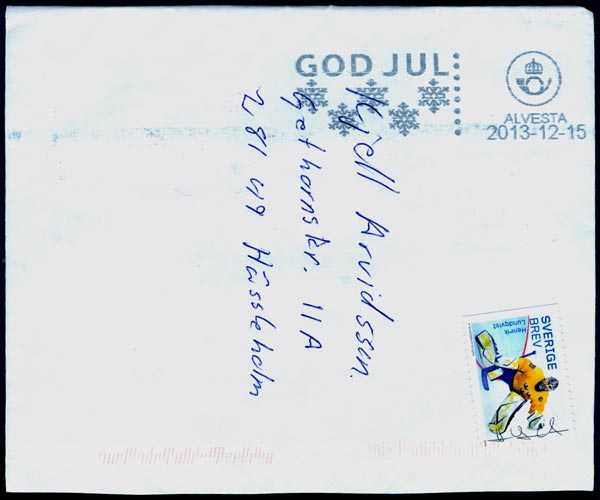 GOD JUL
ALVESTA
2013-12-15
Kjell Arvidsson.
Gethornskr. 11A
281 49 Hässleholm
SVERIGE
BREV
Henrik
Lundqvist